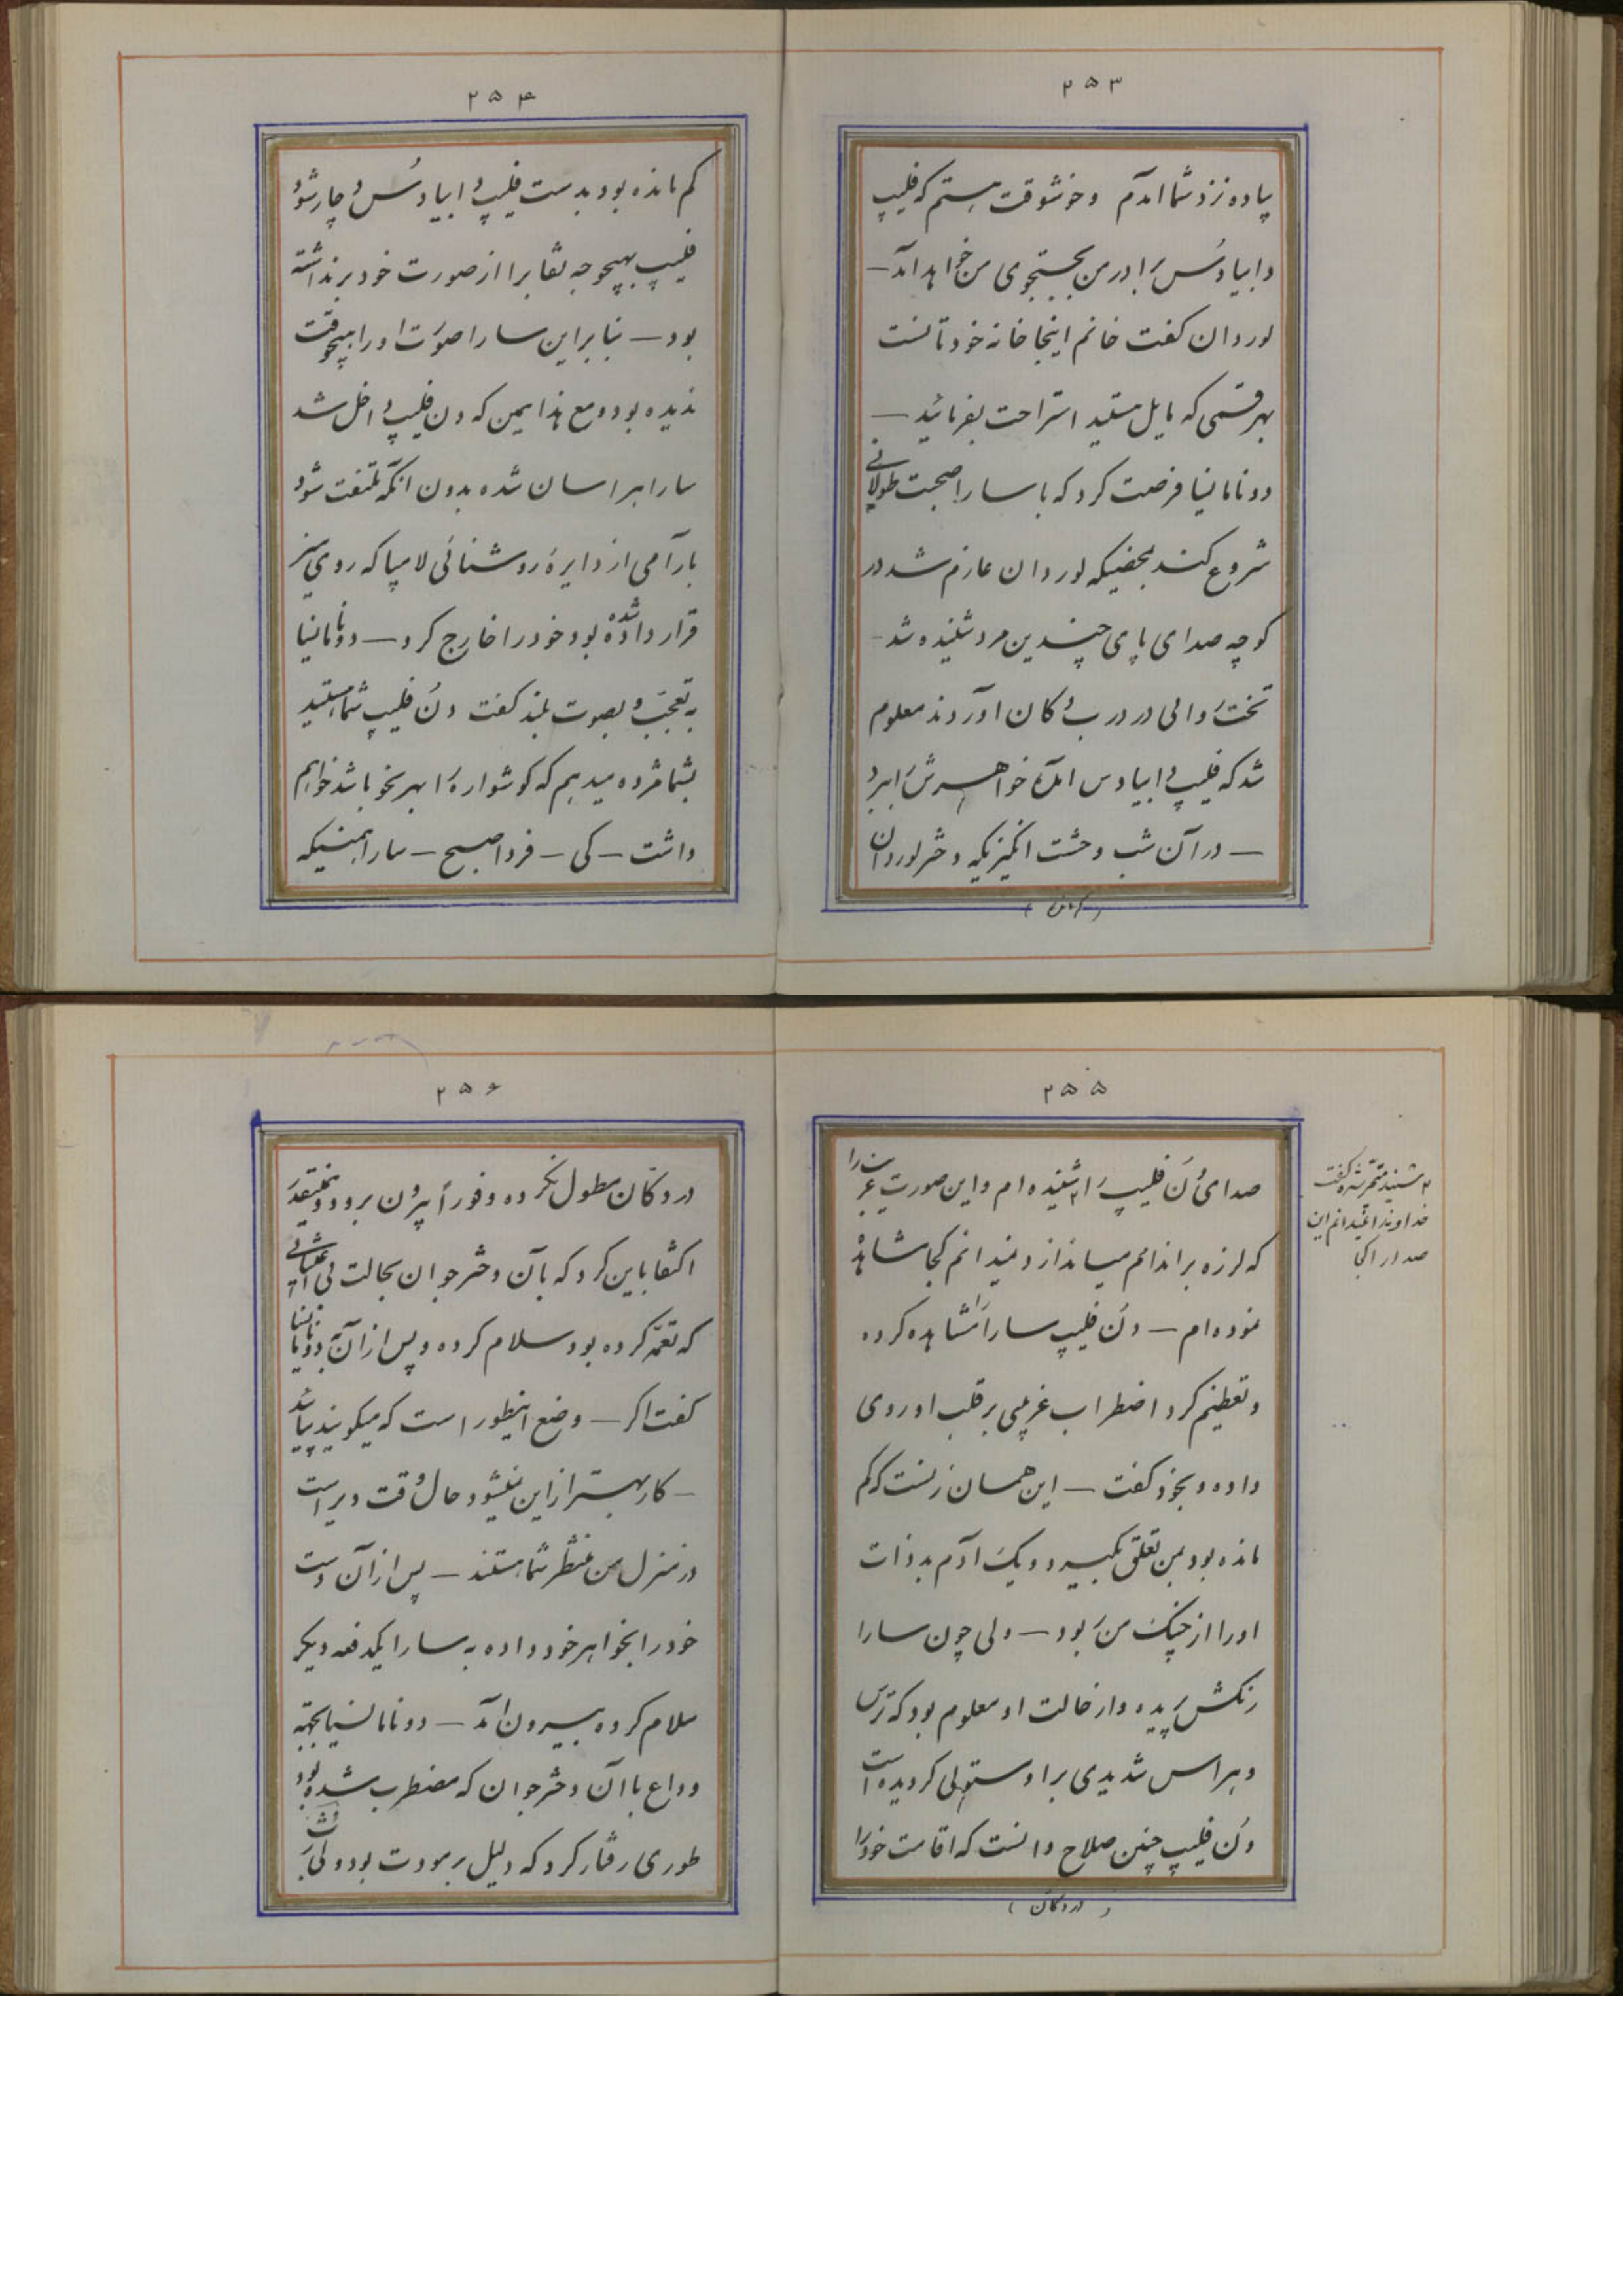 ۲۵۳
پیاده نزد شما آمدم و خوشوقت هستم که فلیپ
و ابیادس برادر من بجستجوی من خواهد آمد —
لوردان کفت خانم اینجا خانه خودتانست
بهر قسمی که مایل هستید استراحت بفرمائید —
دونامانیا فرصت کرد که با سارا صحبت طولانی
شروع کند بمحضیکه لوردان عازم شد در
کوچه صدای پای چندین مرد شنیده شد —
تخت روانی در درب دکان آوردند معلوم
شد که فلیپ و ابیادس آمده خواهرش را ببرد
— در آن شب وحشت انگیزیکه دختر لوردان
۲۵۴
کم مانده بود بدست فلیپ و ابیادس دچار شود
فلیپ بهیچوجه نقاب را از صورت خود برنداشته
بود — بنابراین سارا صورت او را هیچوقت
ندیده بود و مع هذا همین که دن فلیپ داخل شد
سارا هراسان شده بدون آنکه ملتفت شود
بارامی از دایره روشنائی لامپا که روی میز
قرار داده شده بود خود را خارج کرد — دونامانیا
به تعجب و بصوت بلند کفت دن فلیپ شما هستید
بشما مژده میدهم که کوشواره را بهر نحو باشد خواهم
داشت — کی — فردا صبح — سارا همینیکه
۲۵۵
صدای دن فلیپ را شنیده ام و این صورت غریب را
۲ شنید متحیر شده کفت
خداوندا نمیدانم این
صدا را کجا
که لرزه بر اندامم میاندازد نمیدانم کجا مشاهده
نموده ام — دن فلیپ سارا را مشاهده کرده
و تعظیم کرد اضطراب غریبی بر قلب او روی
داده و بخود کفت — این همان زنست که کم
مانده بود بمن تعلق بگیرد و یک آدم بدذات
او را از چنک من ربود — ولی چون سارا
رنکش پریده و از حالت او معلوم بود که ترس
و هراس شدیدی بر او مستولی کردیده است
دن فلیپ چنین صلاح دانست که اقامت خود را
( در دکان )
۲۵۶
در دکان مطول نکرده و فوراً بیرون برود و همینقدر
اکتفا باین کرد که بآن دختر جوان بحالت بی اعتنائی
که تعمد کرده بود سلام کرده و پس از آن بدونامانیا
کفت اکر — وضع اینطور است که میکویند بیائید
— کار بهتر از این نمیشود حال وقت دیر است
در منزل من منتظر شما هستند — پس از آن دست
خود را بخواهر خود داده به سارا یکدفعه دیکر
سلام کرده بیرون آمد — دونامانیا بجهته
وداع با آن دختر جوان که مضطرب شده بود
طوری رفتار کرد که دلیل بر مودت بود ولی